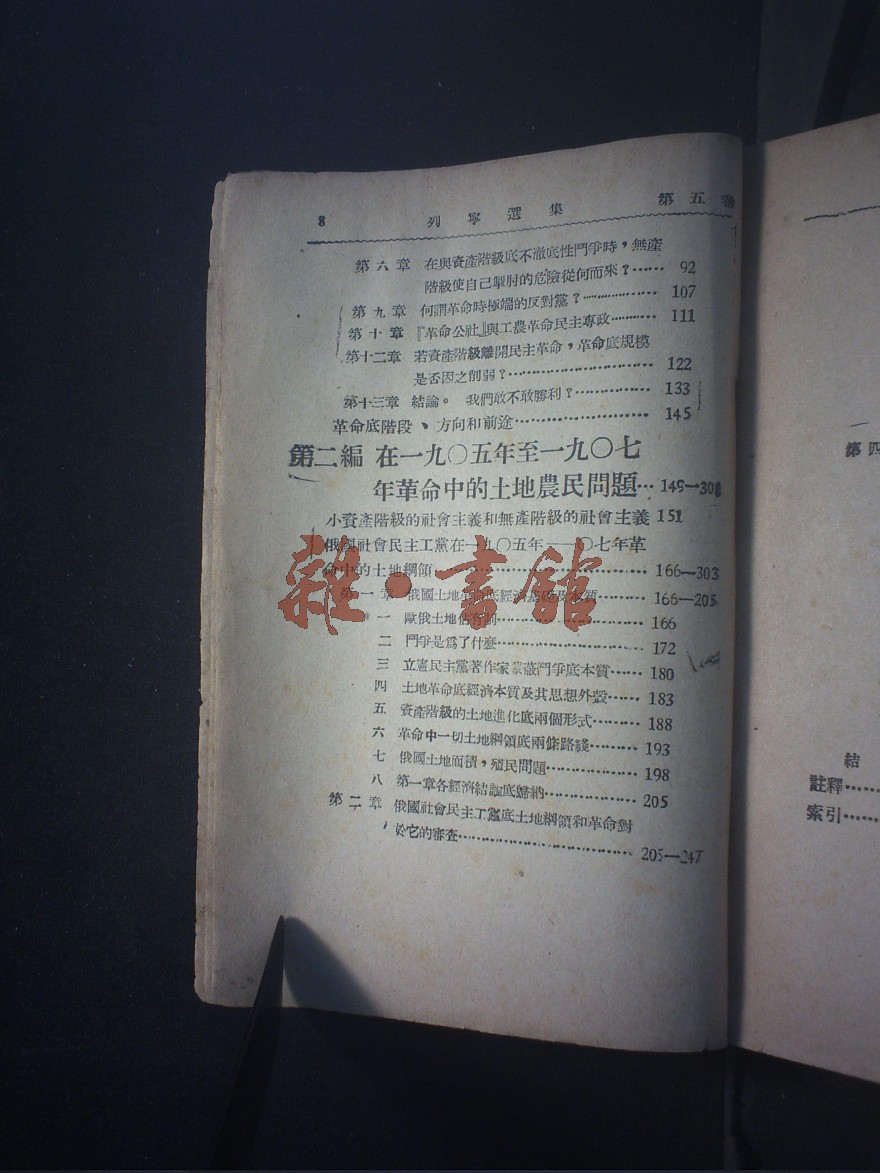 8 列寧選集 第五卷
第六章 在與資產階級底不澈底性鬥爭時，無產
階級使自己掣肘的危險從何而來？…… 92
第九章 何謂革命時極端的反對黨？………… 107
第十章 『革命公社』與工農革命民主專政………… 111
第十二章 若資產階級離開民主革命，革命底規模
是否因之削弱？………………… 122
第十三章 結論。 我們敢不敢勝利？………… 133
革命底階段、方向和前途……………… 145
第二編 在一九〇五年至一九〇七
年革命中的土地農民問題… 149—308
小資產階級的社會主義和無產階級的社會主義 151
俄國社會民主工黨在一九〇五年——〇七年革
命中的土地綱領………………………… 166—303
第一章 俄國土地革命底經濟基礎及本質…… 166—205
一 歐俄土地佔有制………………… 166
二 鬥爭是爲了什麼………………… 172
三 立憲民主黨著作家蒙蔽鬥爭底本質…… 180
四 土地革命底經濟本質及其思想外殼…… 183
五 資產階級的土地進化底兩個形式…… 188
六 革命中一切土地綱領底兩條路綫…… 193
七 俄國土地面積，殖民問題………… 198
八 第一章各經濟結論底歸納………… 205
第二章 俄國社會民主工黨底土地綱領和革命對
於它的審查……………………… 205—247
第四
結
註釋……
索引……
雜·書館